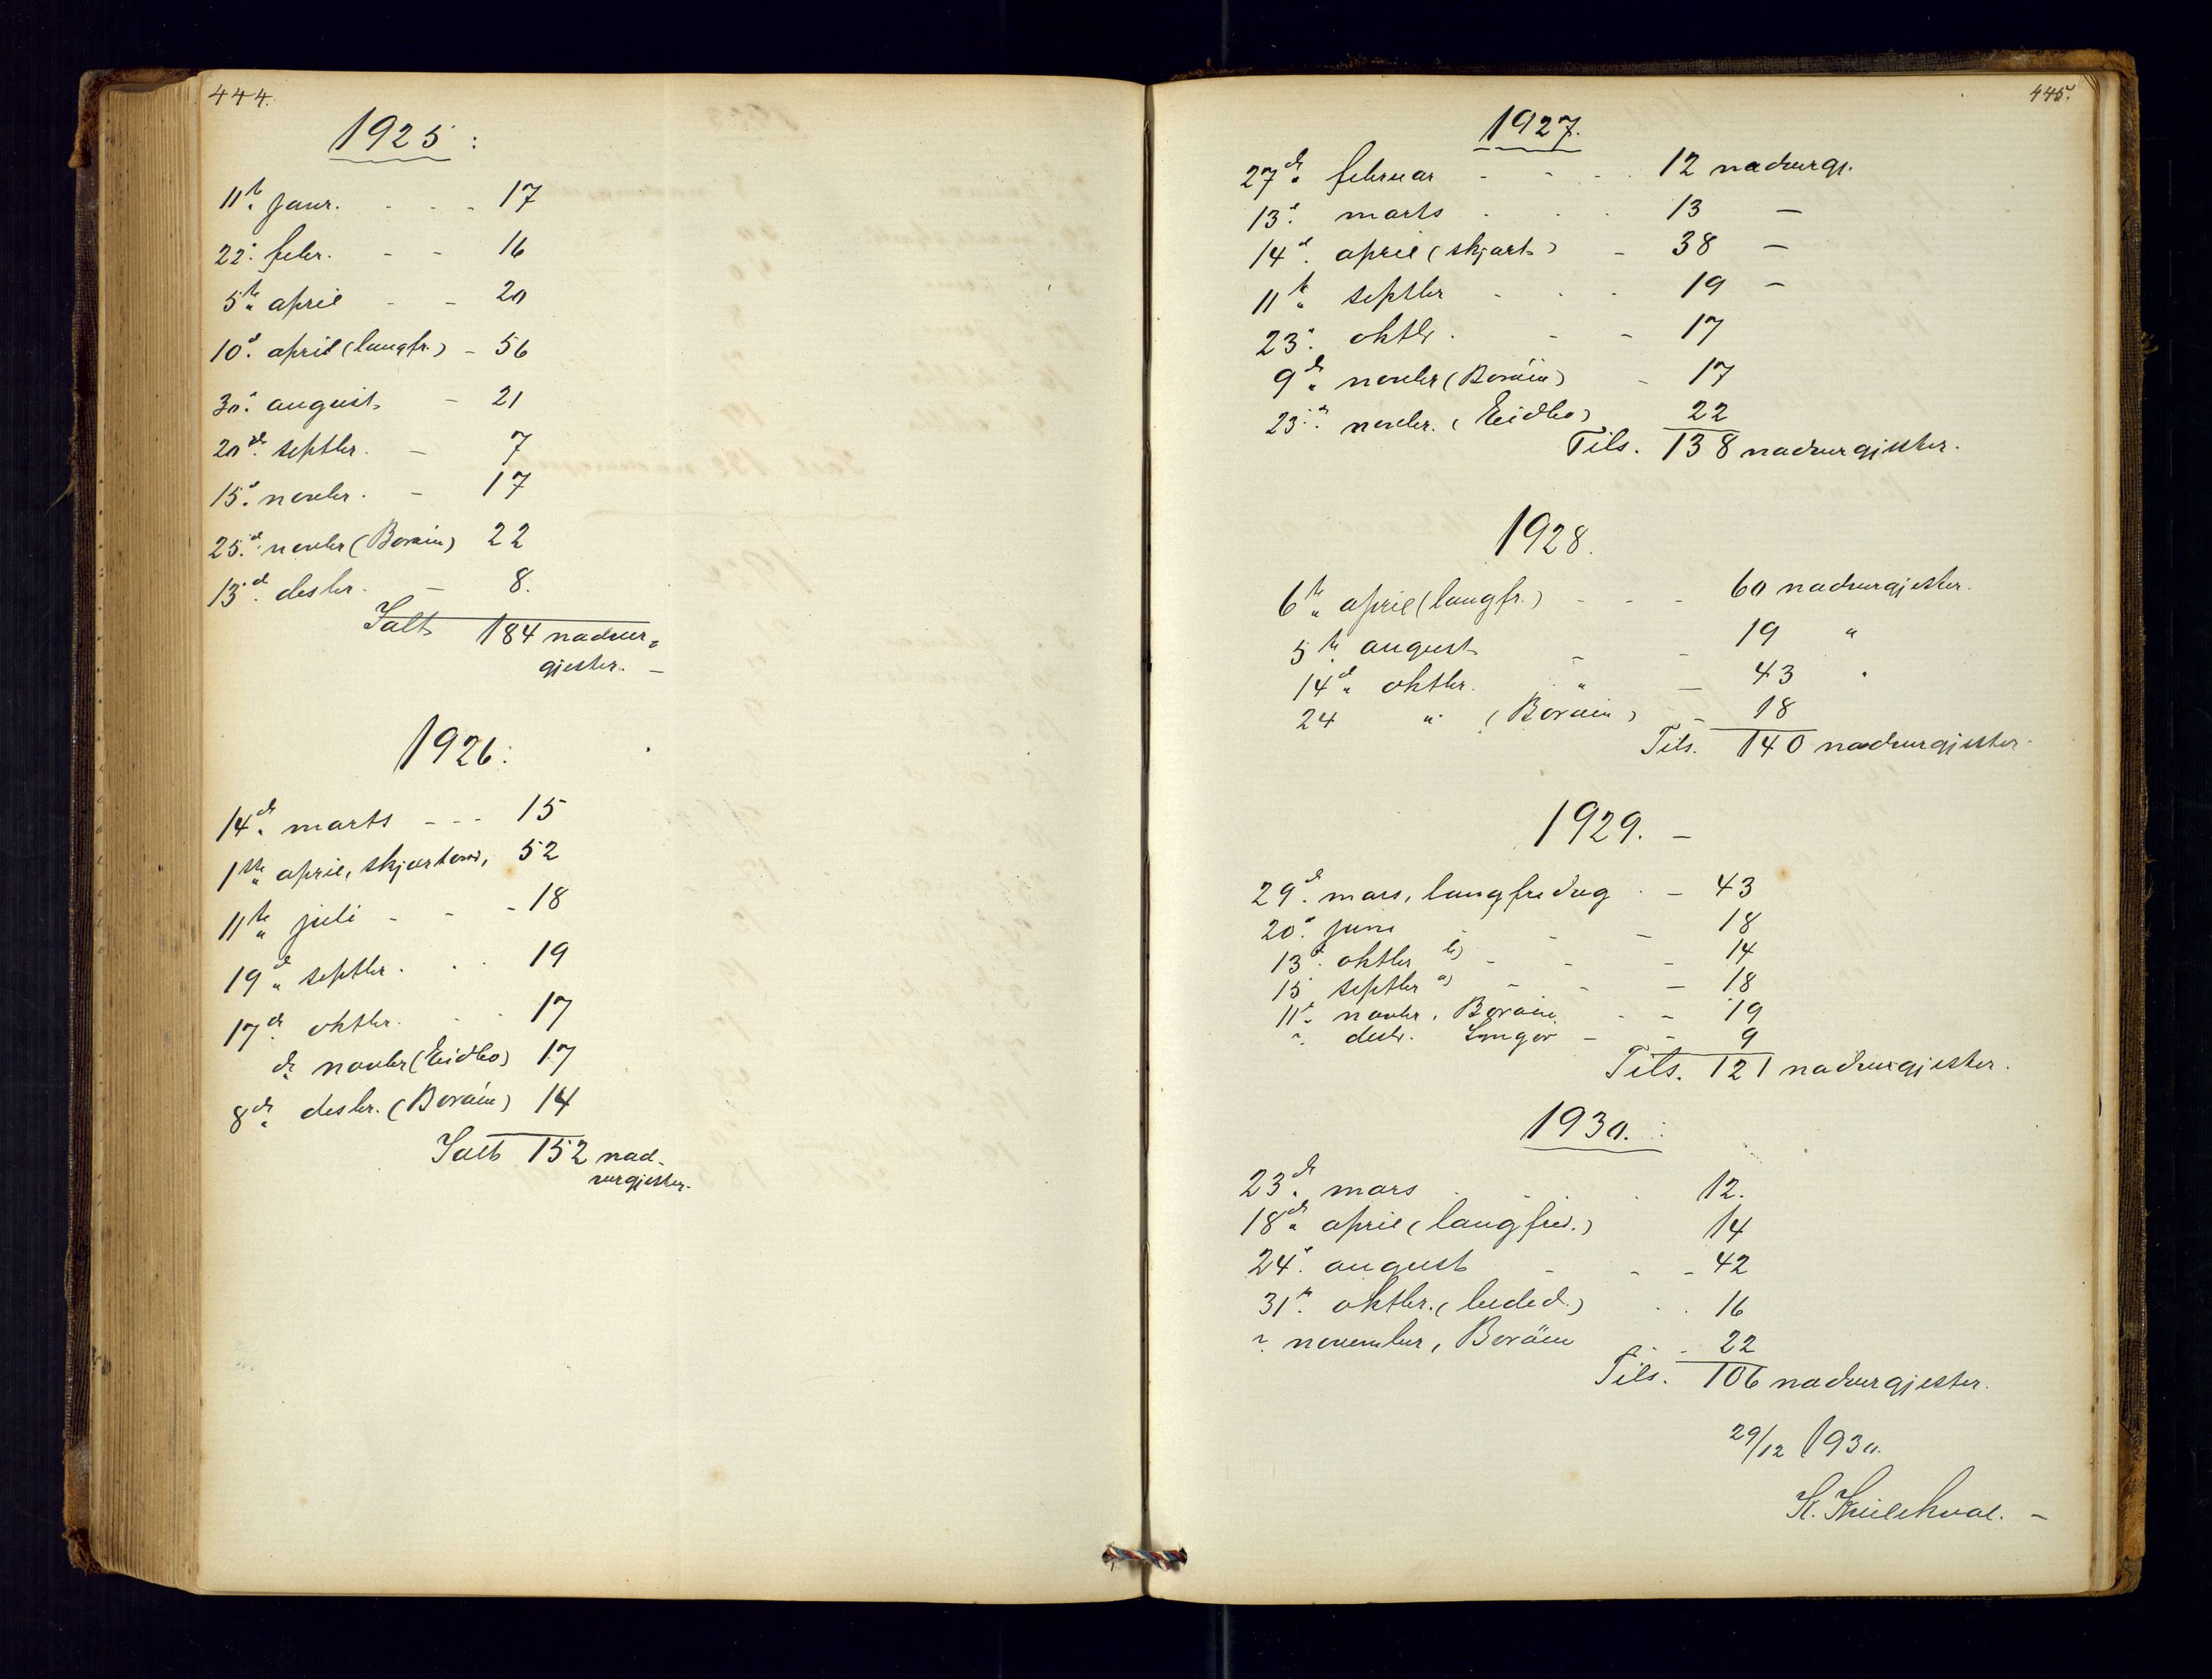 444.
1925:
11te janr. - - - 17
22. febr. - - 16
5te april - - 20
10d. april (langfr.) - 56
30. august - 21
20de septbr. - 7
15d. novbr. - 17
25.d novbr (Boräin) 22
13d. desbr. - 8.
Ialt 184 nadver-
gjester. -
1926:
14de marts - - - 15
1ste april, skjærtorsd, 52
11te juli - - - 18
19d septbr. . . 19
17de oktbr. - - 17
de novbr (Eidbo) 17
8de desbr. (Boräin) 14
Ialt 152 nad-
vergjester.
445.
1927.
27de februar - - - 12 nadvergj.
13d. marts - - - 13 -
14d. april (skjært.) - 38 -
11te septbr - - - 19 -
23d. oktbr. - - 17
9de novbr (Boräin) - 17
23de novbr. (Eidbo) 22
Tils. 138 nadvergjester.
1928.
6te april (langfr.) - - - 60 nadvergjester.
5te august - - 19 "
14d. oktbr. " - 43 "
24 " (Boräin) - 18
Tils. 140 nadvergjester.
1929. -
29d. mars, langfredag - - 43
20d. juni - - - 18
13d. oktbr b) - - - 14
15 septbr a) - - - 18
11te novbr, Boräin - - 19
". desbr. - - 9
Tils. 121 nadvergjester.
1930.
23de mars - - - 12.
18de april (langfred.) 14
24d. august - - - 42
31te oktbr. (beded.) . . 16
". november, Boräin - - 22
Tils. 106 nadvergjester.
29/12 1930.